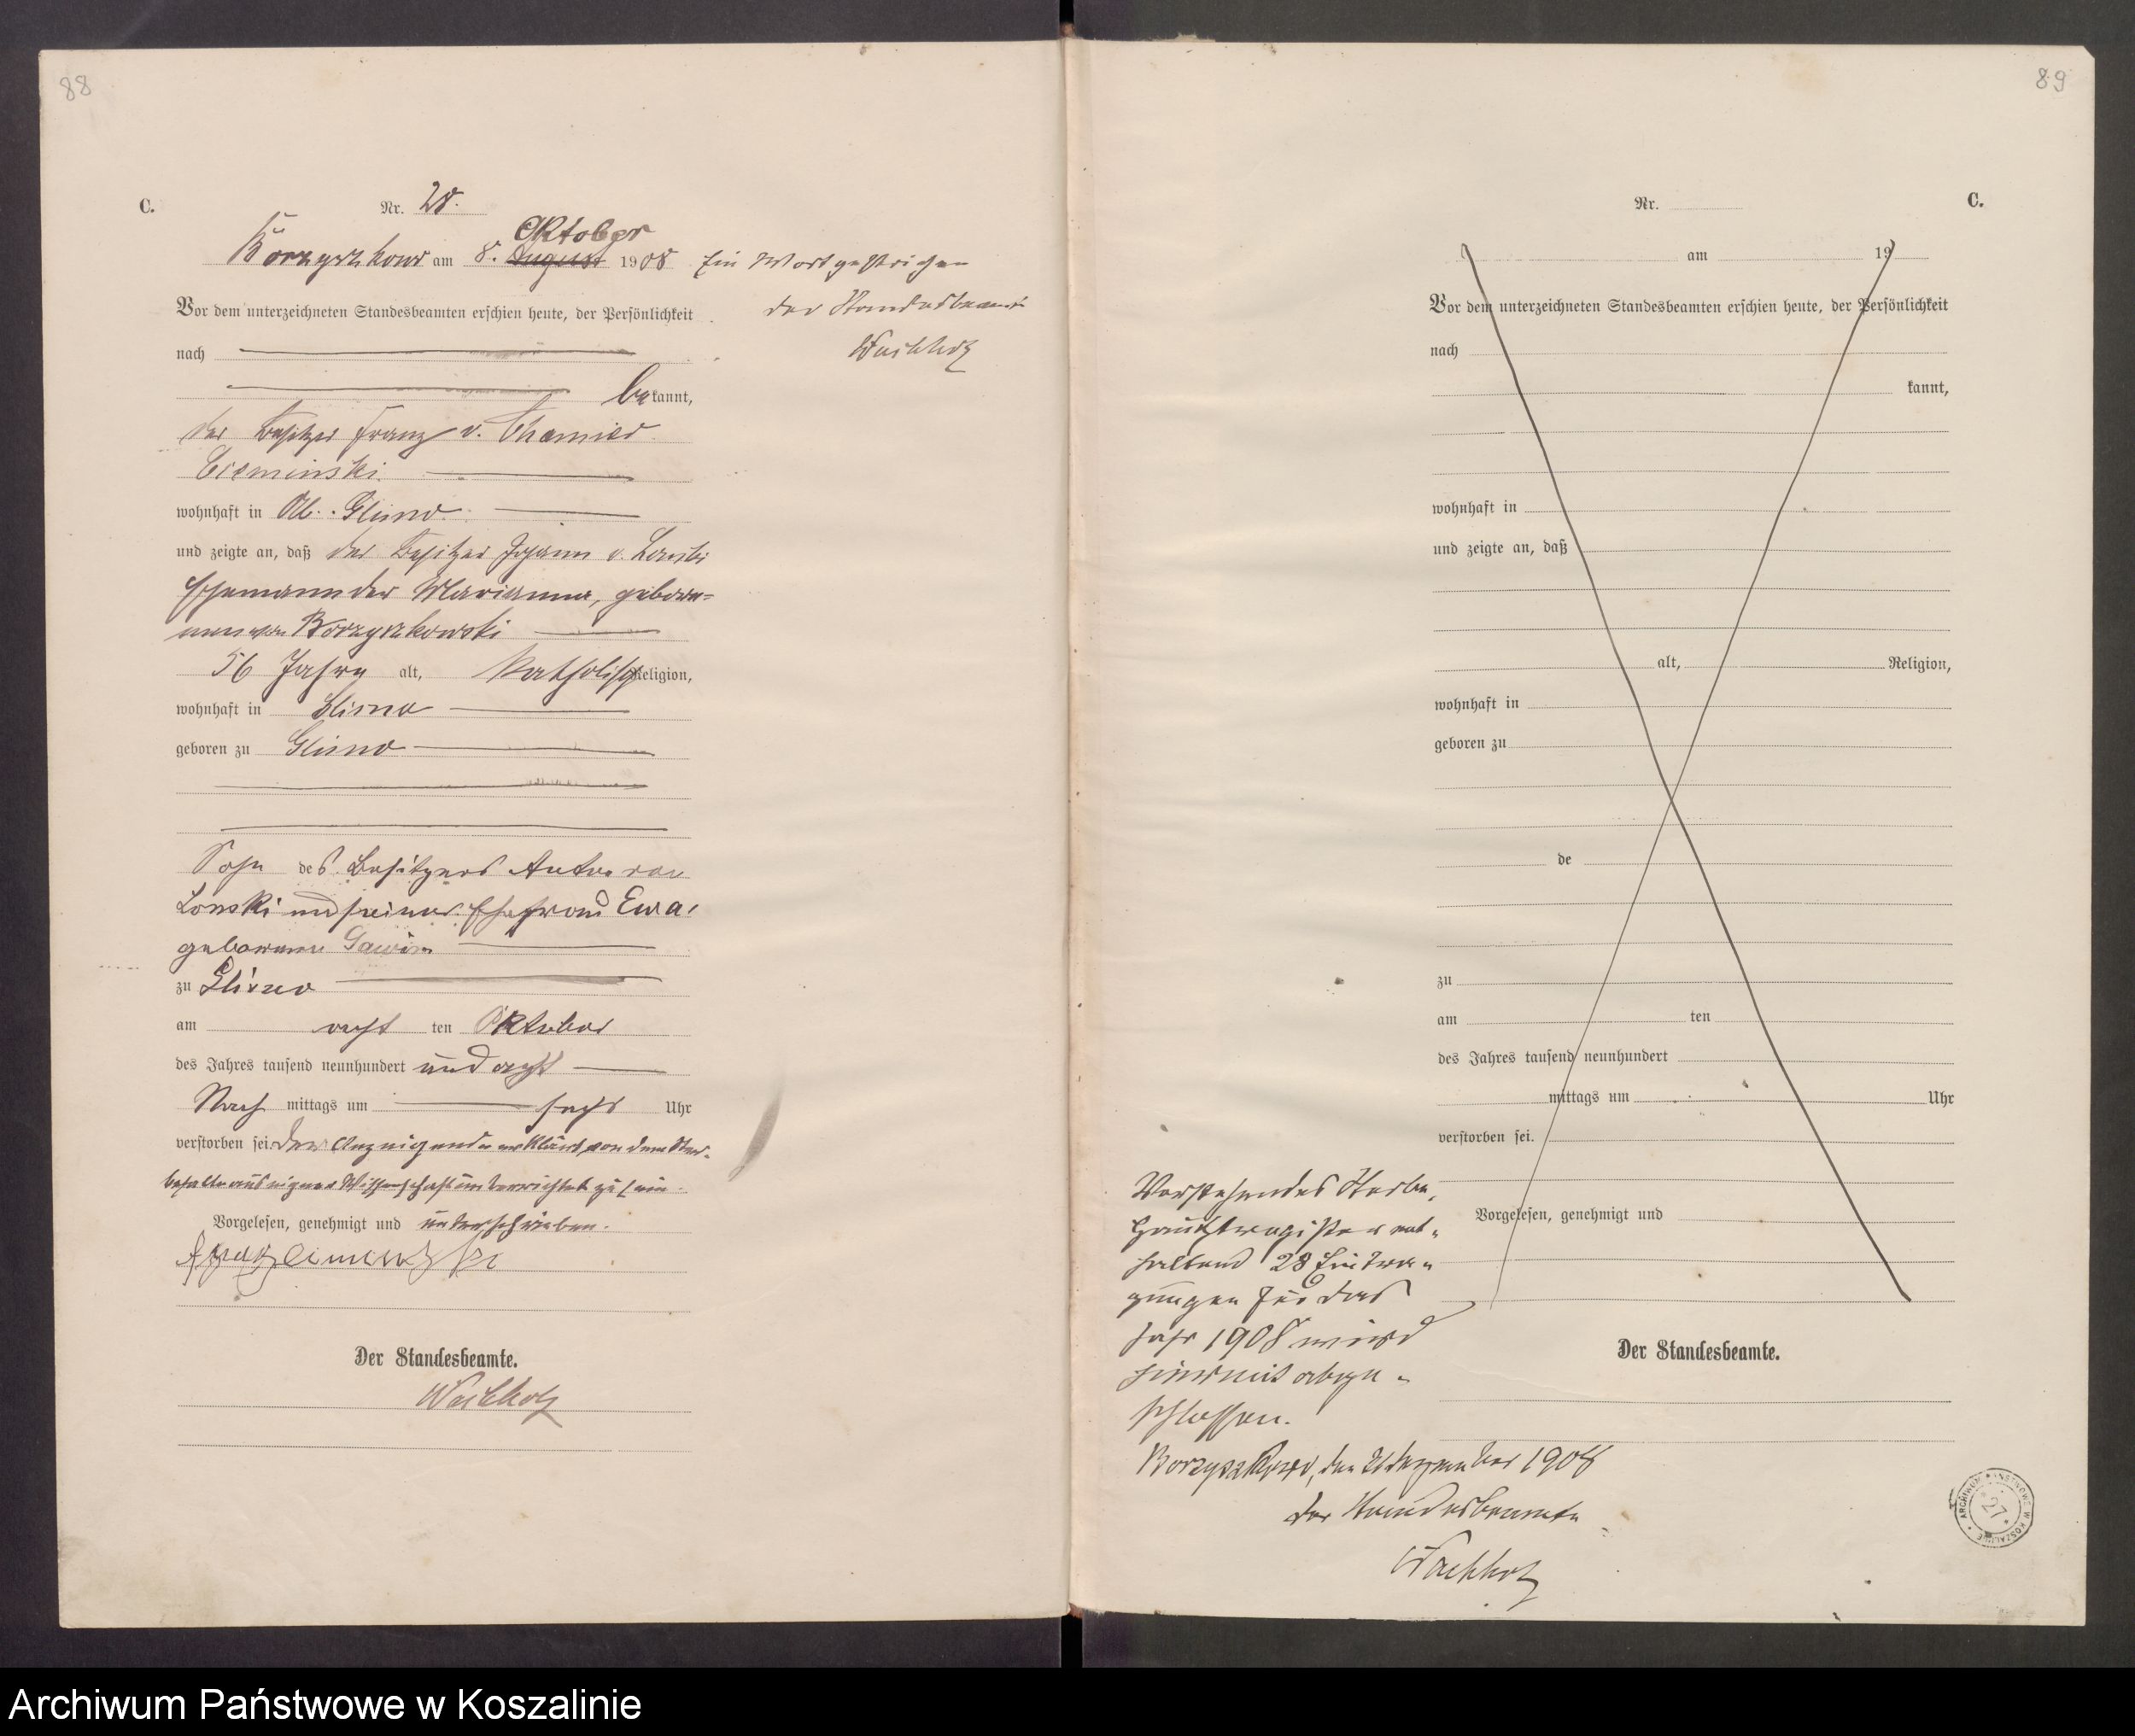 88
C.
Nr. 28.
Oktober
Borzyszkowo am 8. August 1908
Ein Wort gestrichen
der Standesbeamte
Wachholz
Vor dem unterzeichneten Standesbeamten erschien heute, der Persönlichkeit
nach
bekannt,
der Besitzer Franz v. Chamier
Cieminski.
wohnhaft in Abb. Glisno.
und zeigte an, daß der Besitzer Johann v. Lonski
Ehemann der Marianna, gebore=
nen von Borzyszkowski
56 Jahre alt, katholischer Religion,
wohnhaft in Glisno
geboren zu Glisno
Sohn des Besitzers Anton von
Lonski und seiner Ehefrau Ewa,
geborenen
zu Glisno
am acht ten Oktober
des Jahres tausend neunhundert und acht
Nach mittags um sechs Uhr
verstorben sei. Der Anzeigende erklärt, von dem Ster-
befalle aus eigener Wissenschaft unterrichtet zu sein.
Vorgelesen, genehmigt und unterschrieben.
Der Standesbeamte.
Wachholz
89
Nr.
C.
am 19
Vor dem unterzeichneten Standesbeamten erschien heute, der Persönlichkeit
nach
kannt,
wohnhaft in
und zeigte an, daß
alt, Religion,
wohnhaft in
geboren zu
de
zu
am ten
des Jahres tausend neunhundert
mittags um Uhr
verstorben sei.
Vorgelesen, genehmigt und
Der Standesbeamte.
Vorstehendes Sterbe-
hauptregister ent-
haltend 28 Eintra-
gungen für das
Jahr 1908 wird
hiermit abge-
schlossen.
Borzyszkowo, den Dezember 1908
Der Standesbeamte
Wachholz
ARCHIWUM PAŃSTWOWE W KOSZALINIE
27
Archiwum Państwowe w Koszalinie